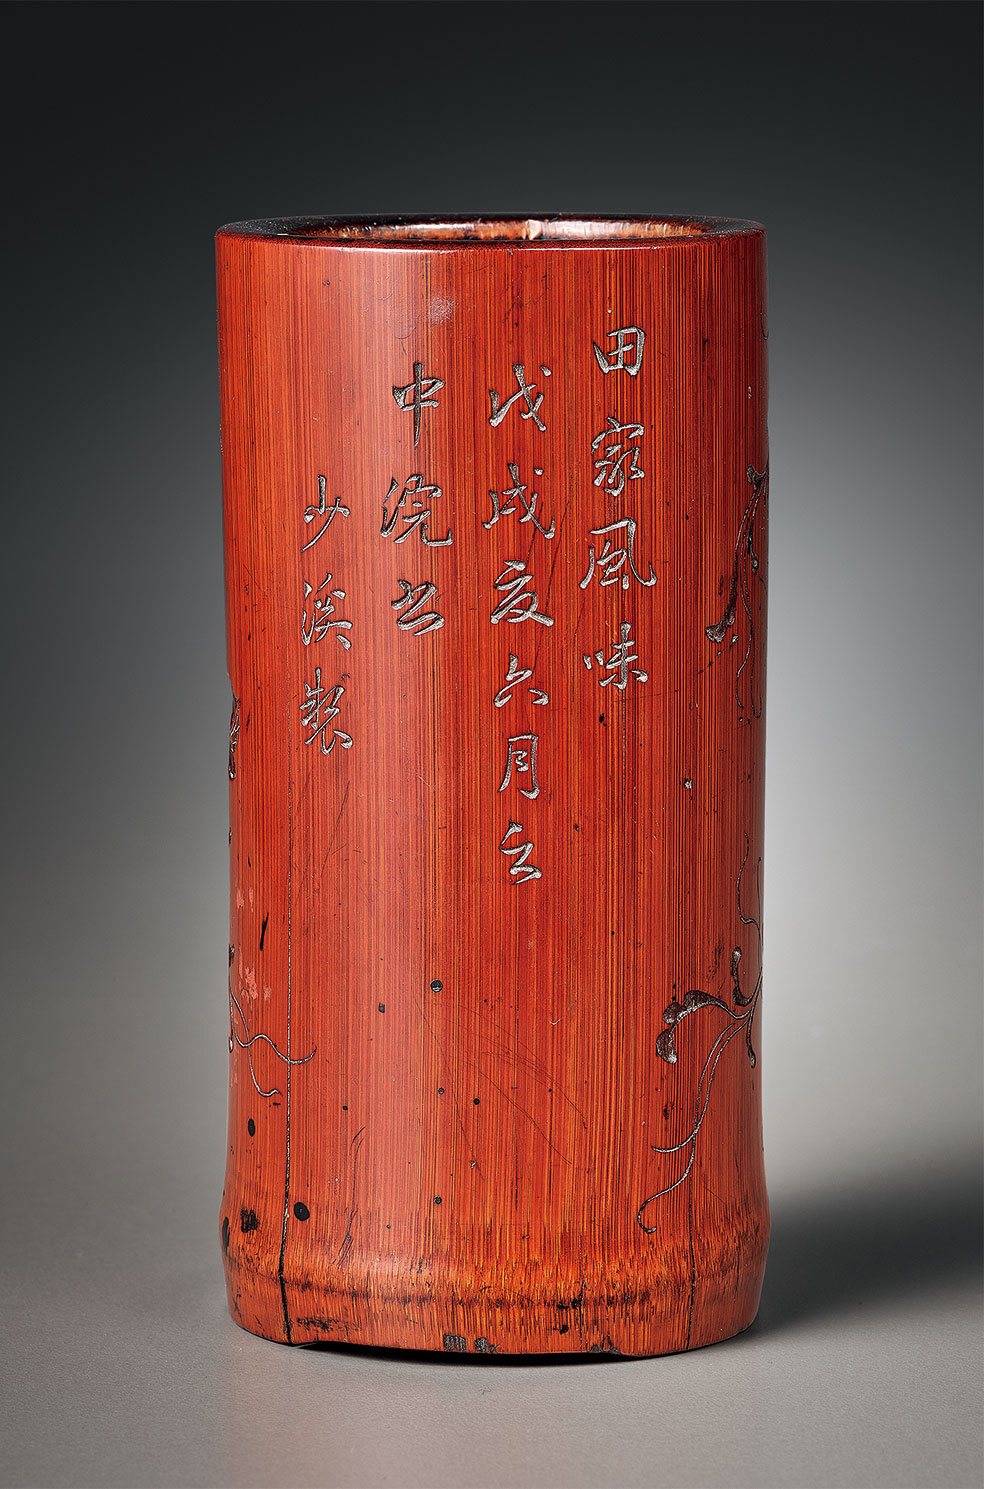 田家風味
戊戌夏六月之
中浣書
少溪製